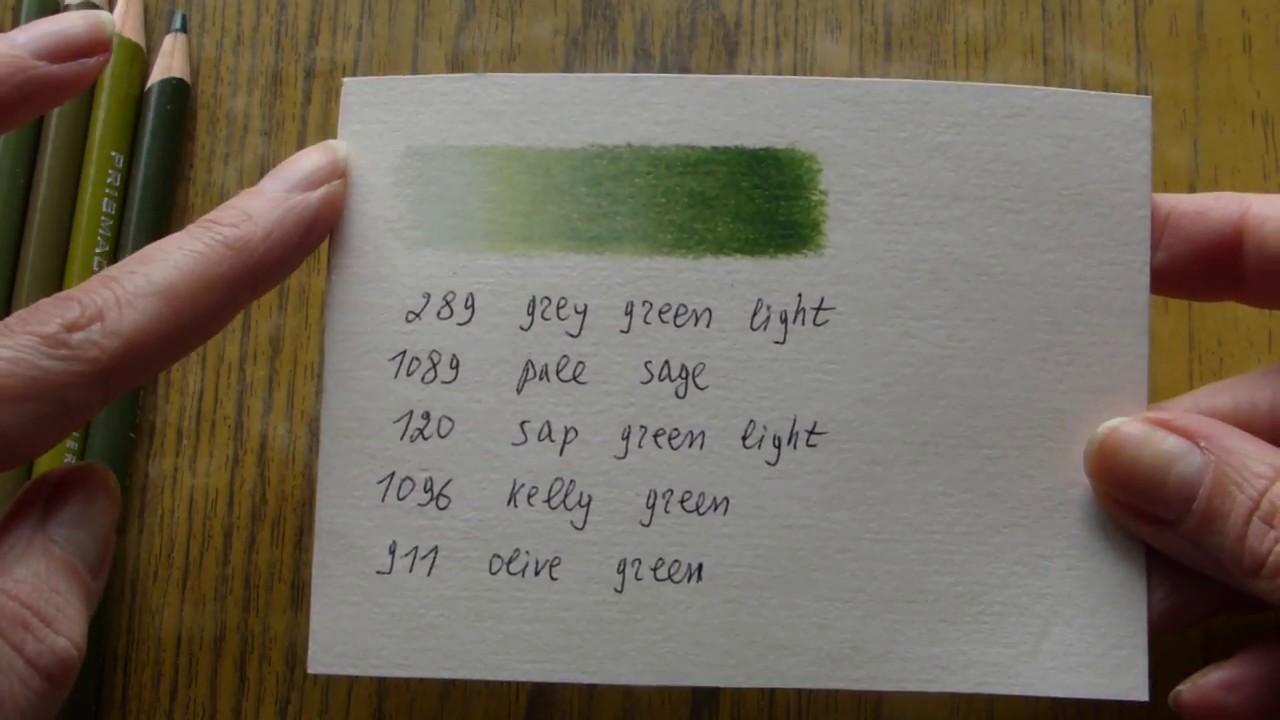 PRISMAC
289 grey green light
1089 pale sage
120 sap green light
1096 kelly green
911 olive green